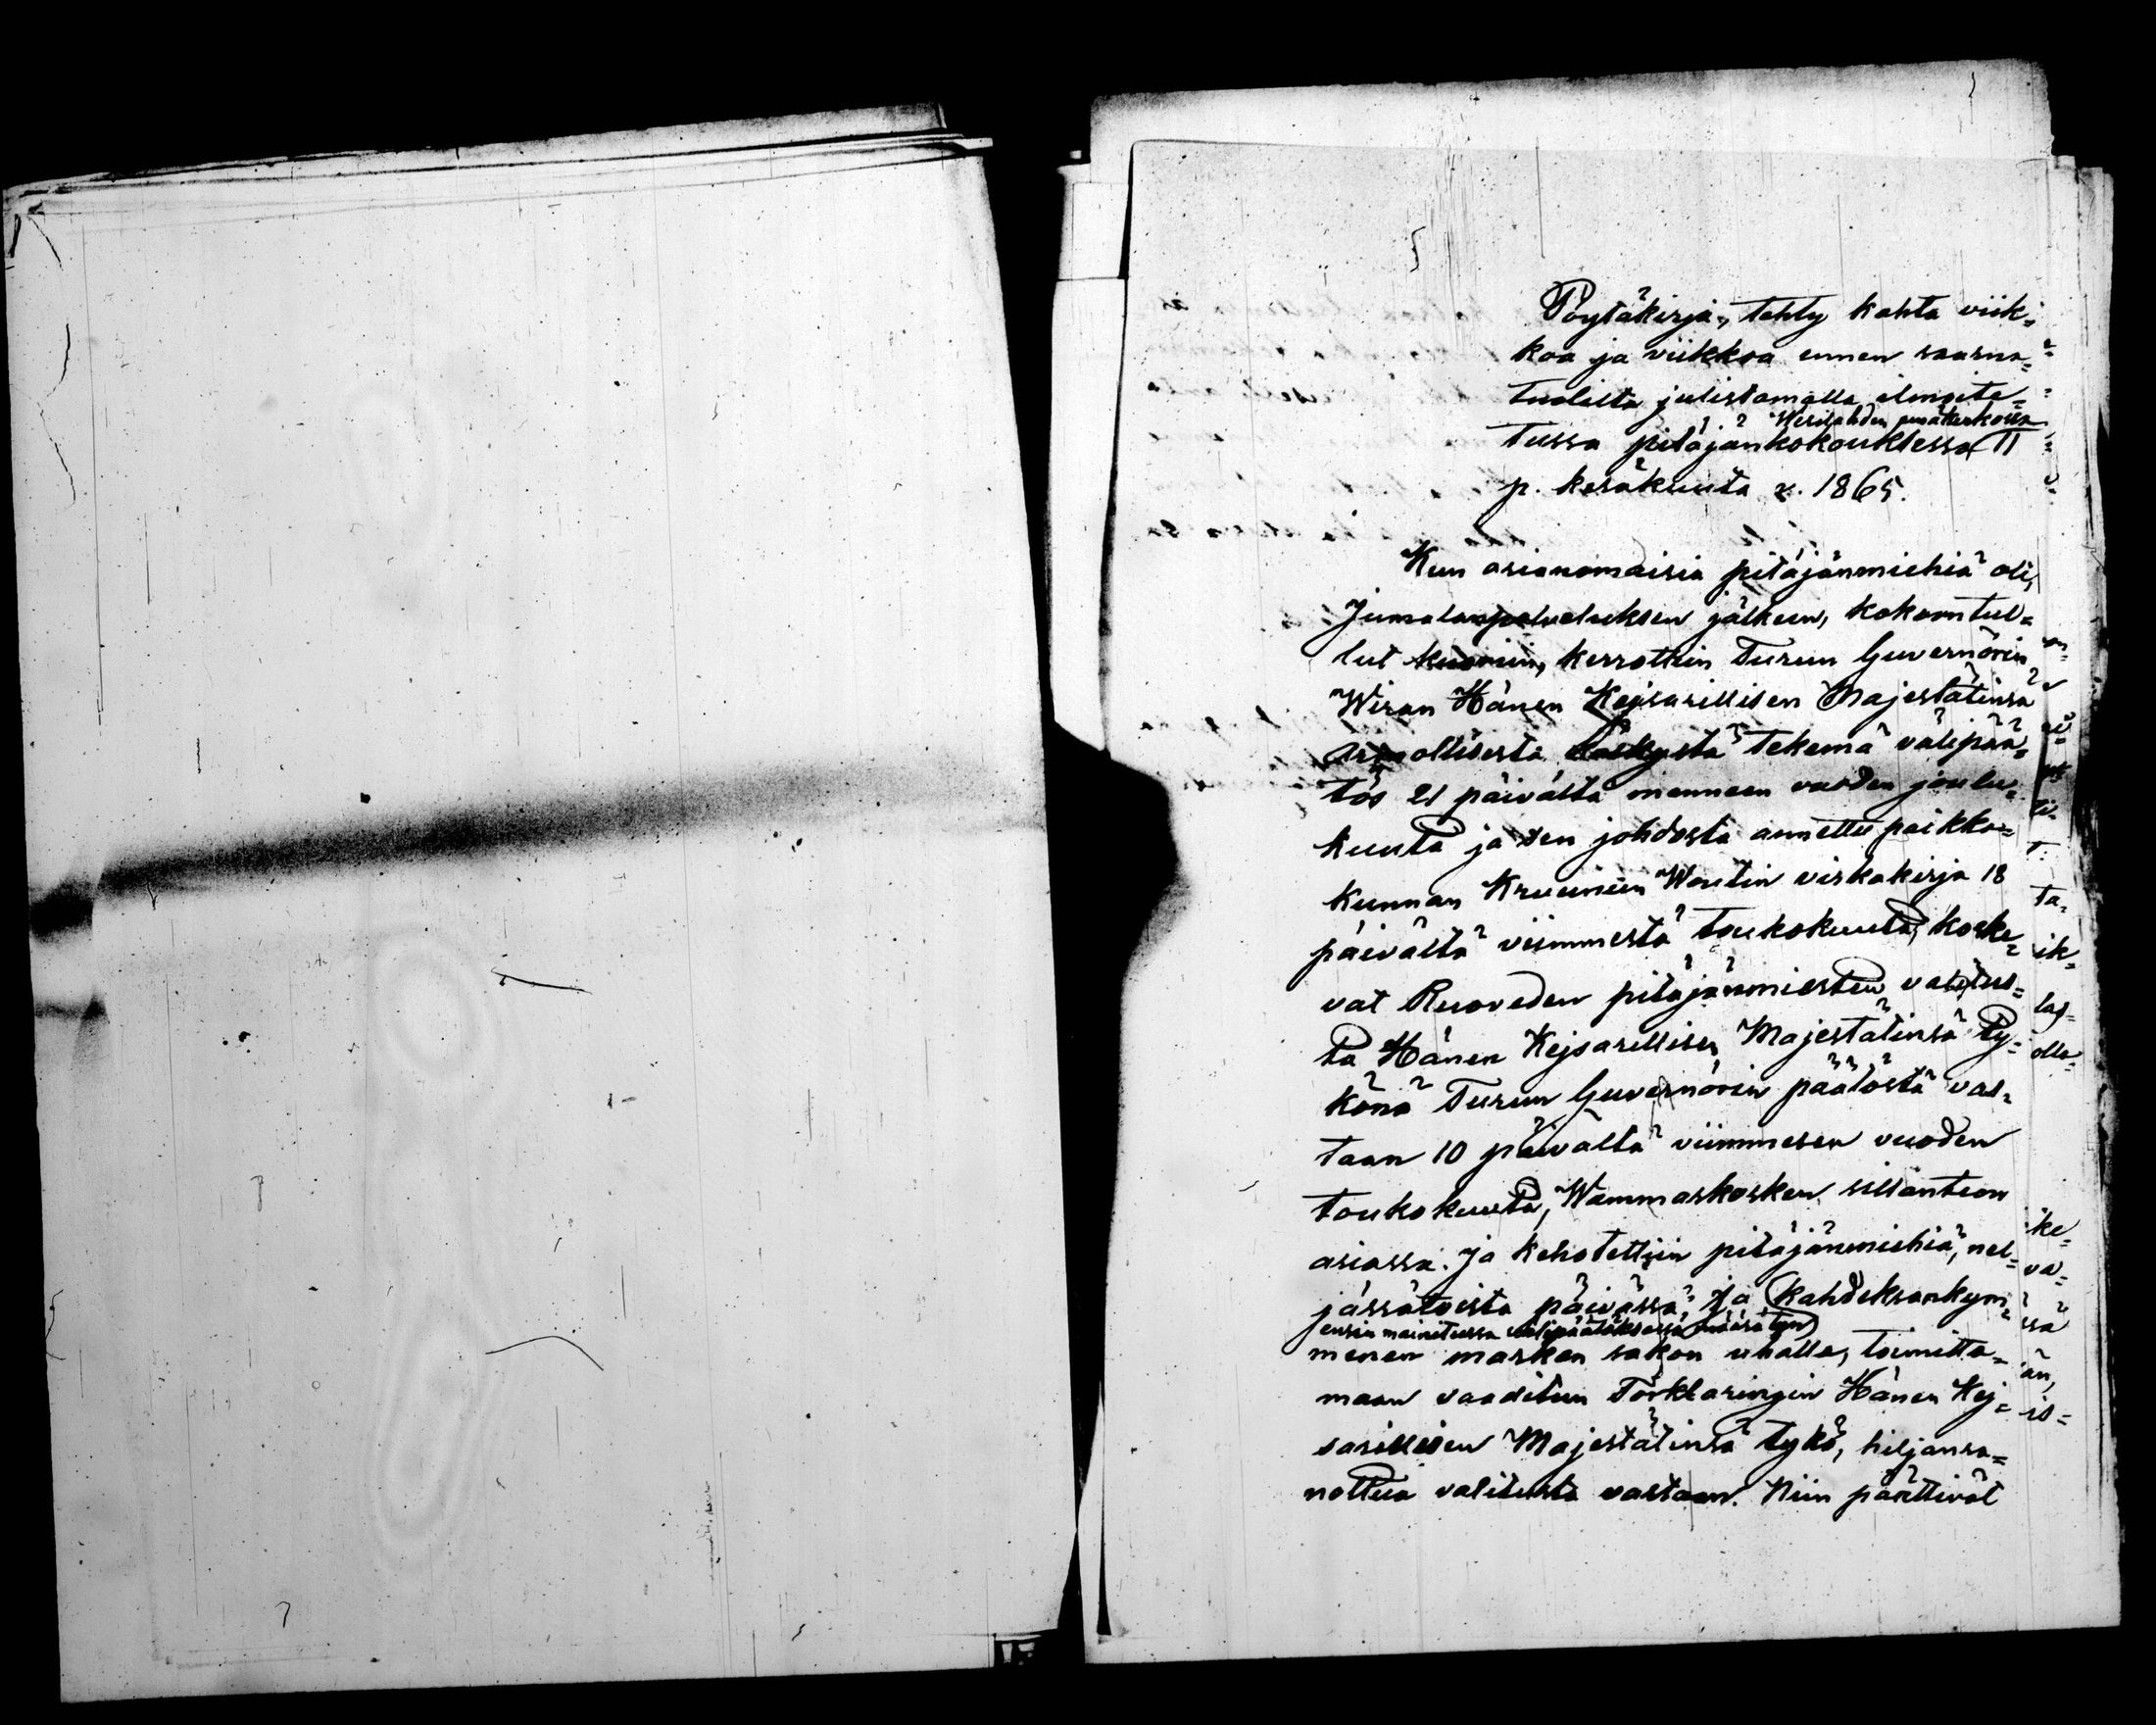 Pöytäkirja, tehty kahta viik=
koa ja viikkoa ennen saarna=
tuolilta julistamalla ilmoite=
Wesilahden emäkirkossa
tussa pitäjänkokouksessa 11
p. kesäkuuta v. 1865.
Kun asianomaisia pitäjänmiehiä oli,
Jumalanpalveluksen jälkeen, kokoontul=
lut kuoriin, kerrottiin Turun Guvernörin
Wiran Hänen Kejsarillisen Majestätinsä
armollisesta käskystä tekemä välipää=
tös 21 päivältä menneen vuoden joulu=
kuuta ja sen johdosta annettu paikka=
kunnan Kruunun Woutin virkakirja 18
päivältä viimmestä toukokuuta, koske=
vat Ruoveden pitäjänmiesten valitus=
ta Hänen Kejsarillisen Majestätinsä ty=
könä Turun Guvernörin päätöstä vas=
taan 10 päivältä viimmesen vuoden
toukokuuta, Wammaskosken sillanteon
asiassa. Ja kehotettiin pitäjänmiehiä, nel=
jässätoista päivässä, ja kahdeksankym=
ensin mainitussa välipäätöksessä määrätyn
menen markan sakon uhalla, toimitta=
maan vaaditun Förklaringin Hänen Kej=
sarillisen Majestätinsä tykö, hiljansa=
nottua valitusta vastaan. Niin päättivät